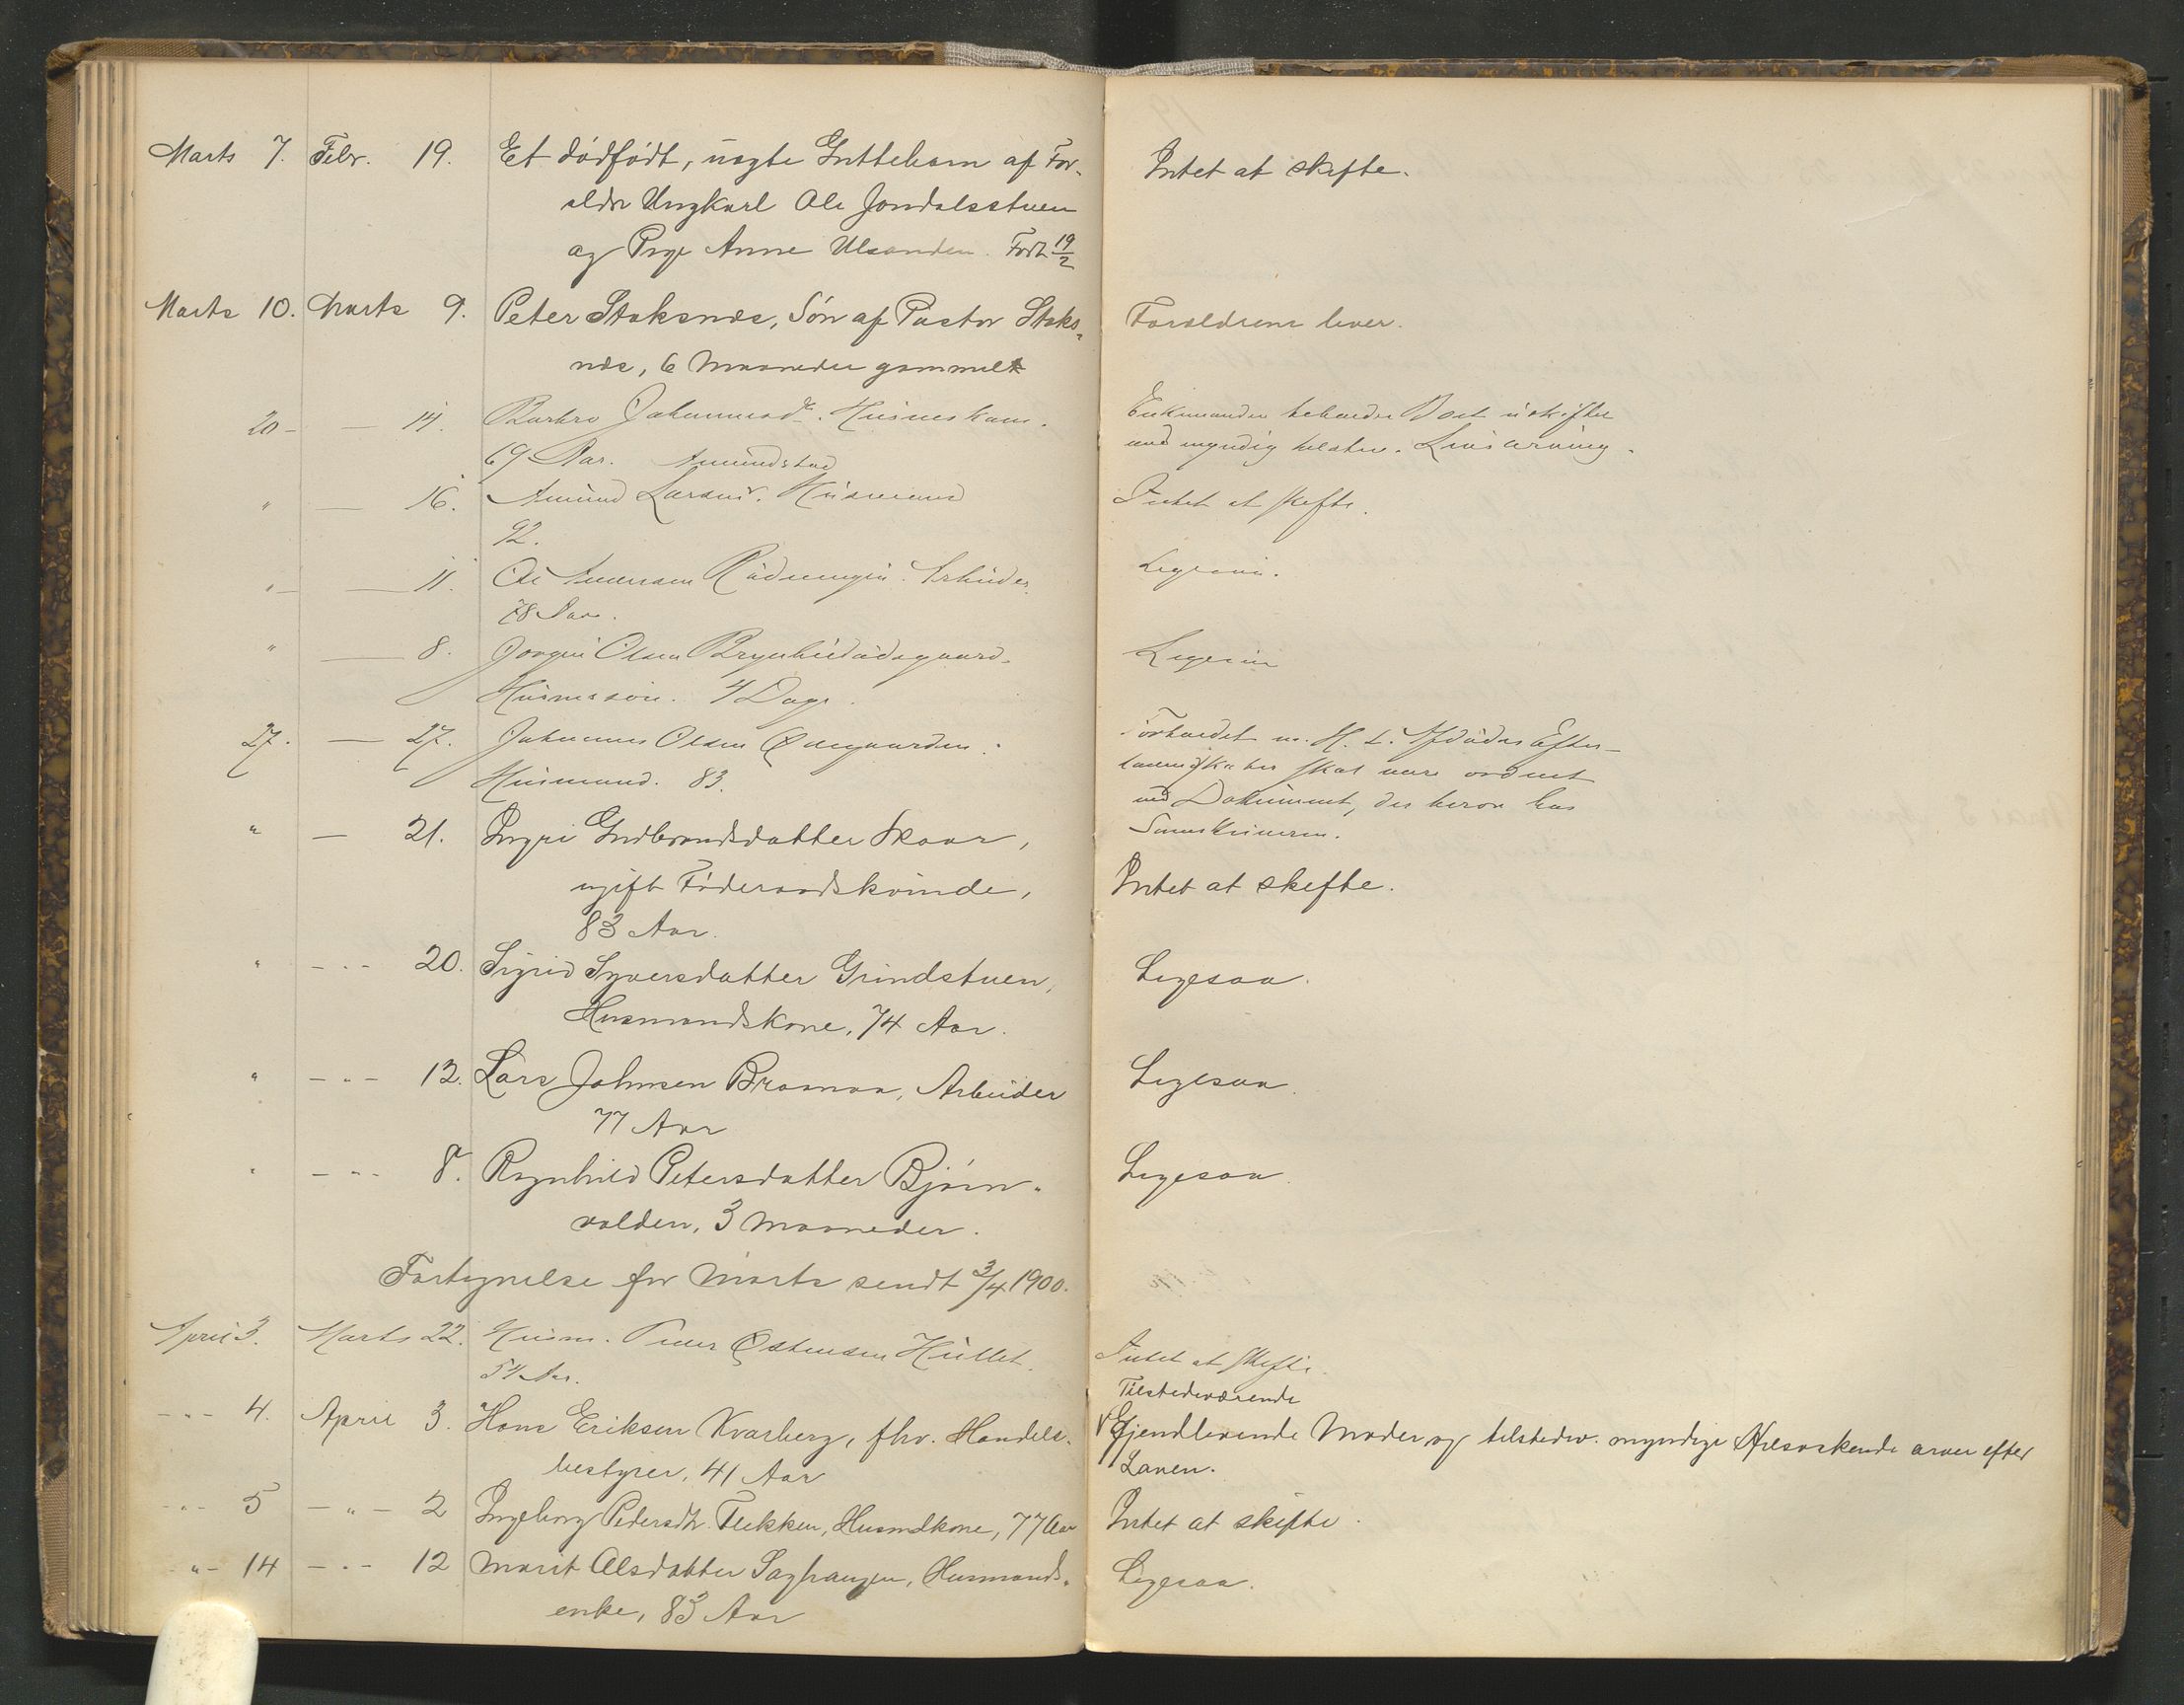 Marts 7. Febr. 19. Et dødfødt, uægte Guttebarn af For-
ældre Ungkarl Ole Jondalsstuen
og Pige Anne Ulsanden. Født 19/2
Intet at skifte.
Marts 10. Marts 9. Peter Stoksnæs, Søn af Pastor Stoks-
næs, 6 Maaneder gammel
Forældrene lever.
20 - — 14. Barbro Johannesd. Husmskone.
69 Aar. Amundstad
Enkemanden beholder Boet uskiftet
med myndig tilstev. Livsarving.
" — 16. Amund Larsen. Husmand
92.
Intet at skifte.
" — 11. Ole Amundsen Rudiengen. Arbeider
78 Aar.
Ligesaa.
" — 8. Jørgen Olsen Brynhildsødegaard.
Husmsøn. 4 Dage.
Ligesaa
27. — 27. Johannes Olsen Øvregaarden.
Husmand. 83.
Forholdet m. H. t. Afdødes Efter-
ladenskaber skal være ordnet
ved Dokument, der beror hos
Sorenskriveren.
" — 21. Ingri Gudbrandsdatter Skaar,
ugift Føderaadskvinde,
83 Aar.
Intet at skifte.
" - " - 20. Sigrid Syversdatter Grindstuen,
Husmandskone, 74 Aar.
Ligesaa.
" - " - 12. Lars Johnsen Braanaa, Arbeider
77 Aar
Ligesaa.
" - " - 8. Ragnhild Petersdatter Bjørn-
volden, 3 Maaneder.
Ligesaa.
Fortegnelse for Marts sendt 3/4 1900.
April 3. Marts 22. Husm. Peder Østensen Hullet.
54 Aar.
Intet at skifte.
- " - 4. April 3. Hans Eriksen Kvarberg, fhv. Handels-
bestyrer, 41 Aar
Tilstedeværende
Gjenlevende Moder og tilstedev. myndige Helsøskende arver efter
Loven.
- " - 5 - " - 2 Ingeborg Pedersdtr. Flekken, Husmdkone, 77 Aar
Intet at skifte.
- " - 14 - " - 12 Marit Olsdatter Saghaugen, Husmands-
enke, 83 Aar
Ligesaa.